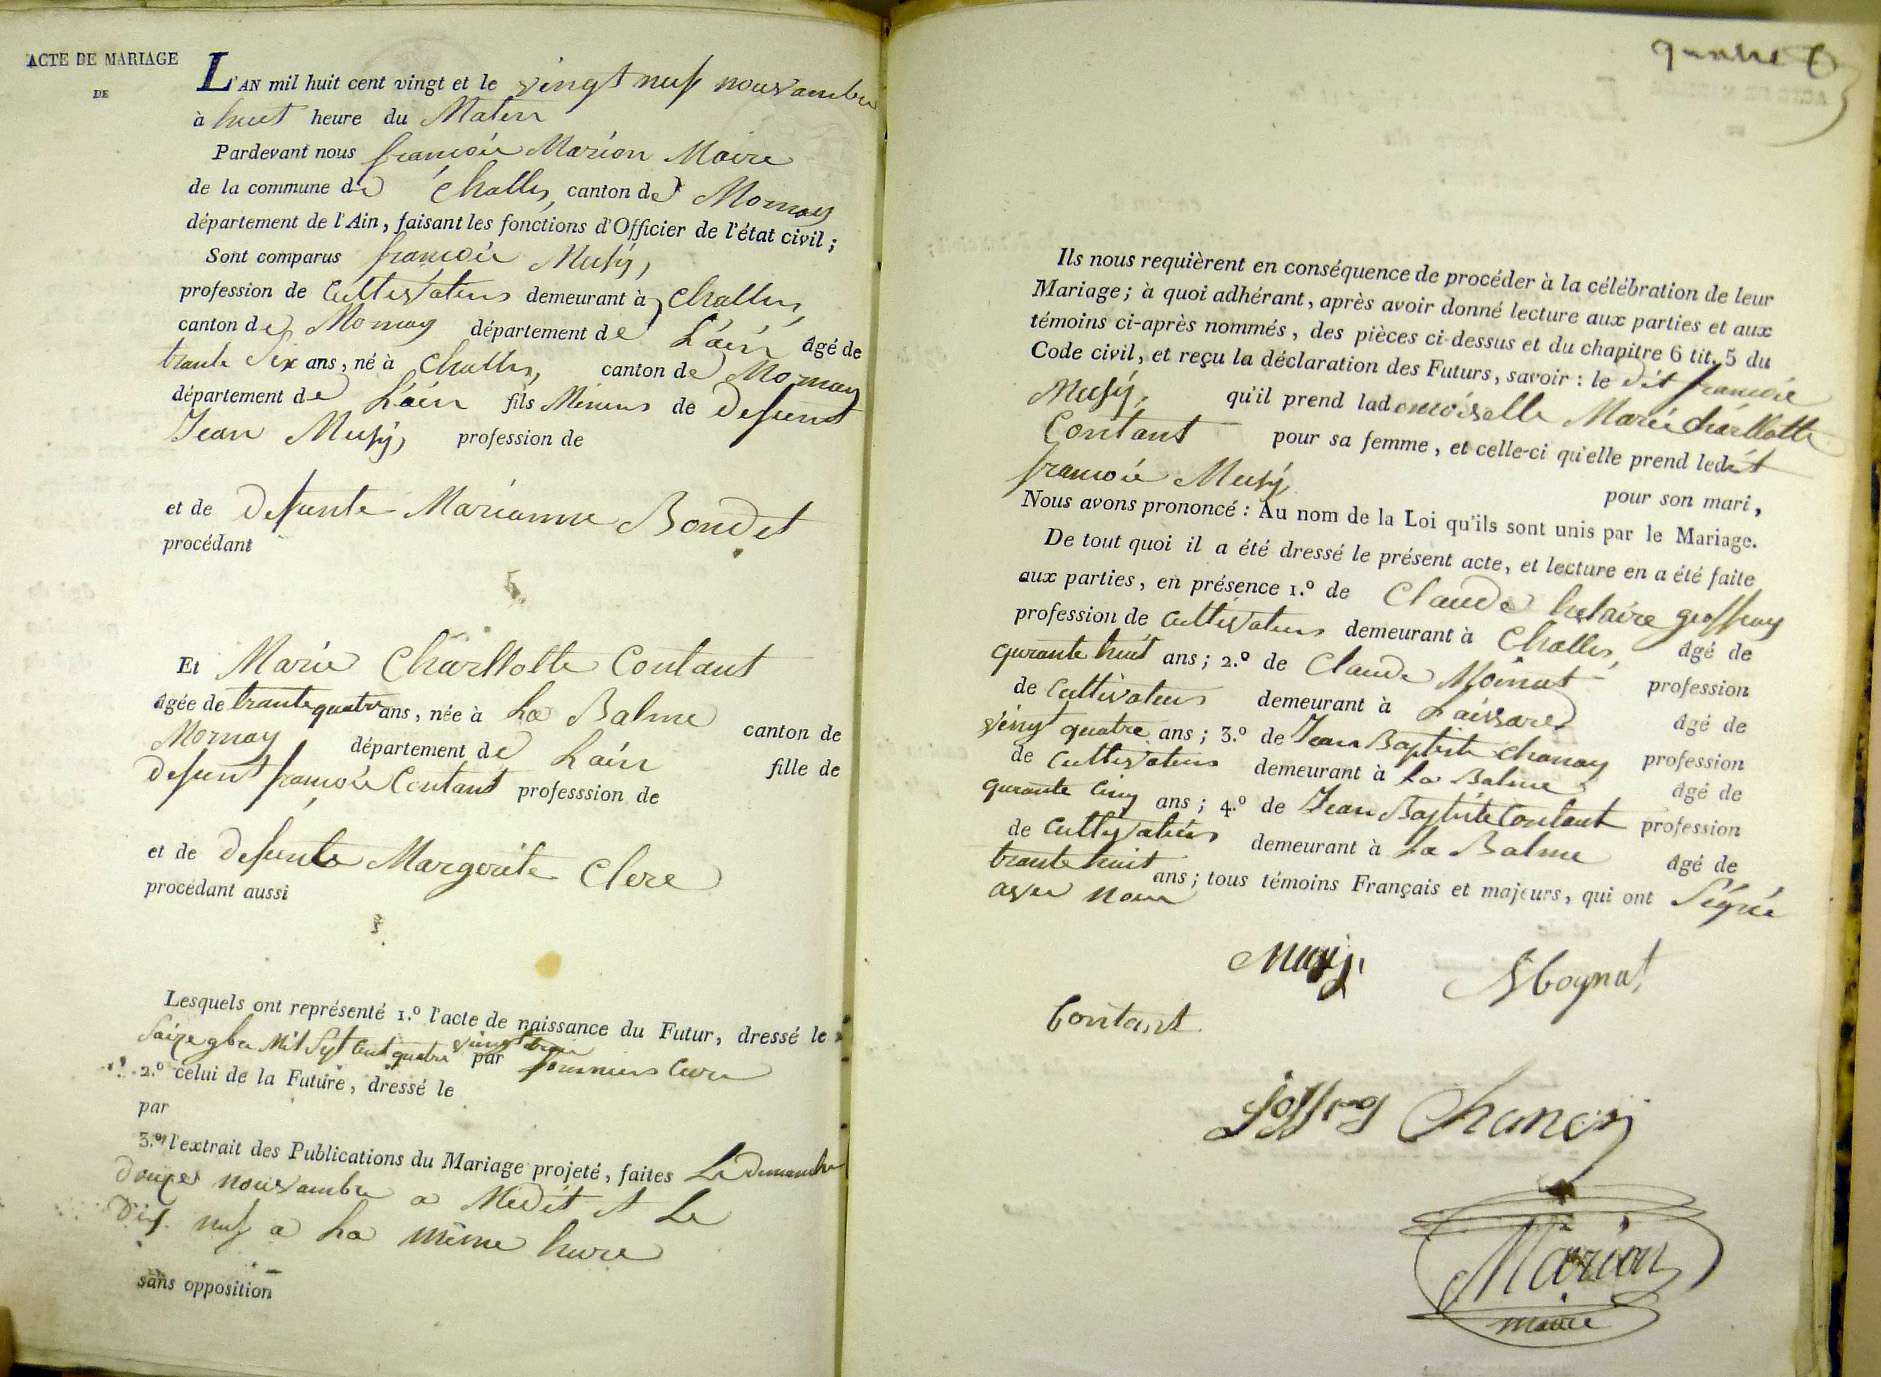 ACTE DE MARIAGE
DE
L'AN mil huit cent vingt et le vingt neuf nouvambre
à huit heure du Matin
Pardevant nous françois Marion Maire
de la commune de Challes, canton de Mornay
département de l'Ain, faisant les fonctions d'Officier de l'état civil;
Sont comparus françois Musÿ,
profession de Cultivateur demeurant à Challes,
canton de Mornay département de L'ain âgé de
trante Six ans, né à Challes, canton de Mornay
département de L'ain fils Mineur de defeunt
Jean Musÿ, profession de
et de defunte Marianne Bondet
procédant
Et Marie Charllotte Contant
âgée de trante quatre ans, née à La Balme canton de
Mornay département de Lain fille de
defunt françois Contant professsion de
et de defunte Margerite Clere
procédant aussi
Lesquels ont représenté 1.º l'acte de naissance du Futur, dressé le
Saize 9bre Mil Sept Cent quatre vingt trois par Curé
2.º celui de la Future, dressé le
par
3.º l'extrait des Publications du Mariage projeté, faites Le dimanche
douze nouvambre a Médit et Le
dix neuf a La même heure
sans opposition
Ils nous requièrent en conséquence de procéder à la célébration de leur
Mariage; à quoi adhérant, après avoir donné lecture aux parties et aux
témoins ci-après nommés, des pièces ci-dessus et du chapitre 6 tit. 5 du
Code civil, et reçu la déclaration des Futurs, savoir: le dit françois
Musÿ, qu'il prend lademoiselle Marie Charllotte
Contant pour sa femme, et celle-ci qu'elle prend ledit
françois Musÿ pour son mari,
Nous avons prononcé: Au nom de la Loi qu'ils sont unis par le Mariage.
De tout quoi il a été dressé le présent acte, et lecture en a été faite
aux parties, en présence 1.º de Claude helaire geoffray
profession de Cultivateur demeurant à Challes, âgé de
qurante huit ans; 2.º de Claude Moinat profession
de Cultivateur demeurant à Laissard âgé de
vingt quatre ans; 3.º de Jean Baptiste Chanay profession
de Cultivateur demeurant à La Balme âgé de
qurante Cinq ans; 4.º de Jean Baptiste Contant profession
de Cultivateur demeurant à La Balme âgé de
trante huit ans; tous témoins Français et majeurs, qui ont Signé
avec nous
Musÿ Moynat
Contant
Joffray Chanay
Marion
maire